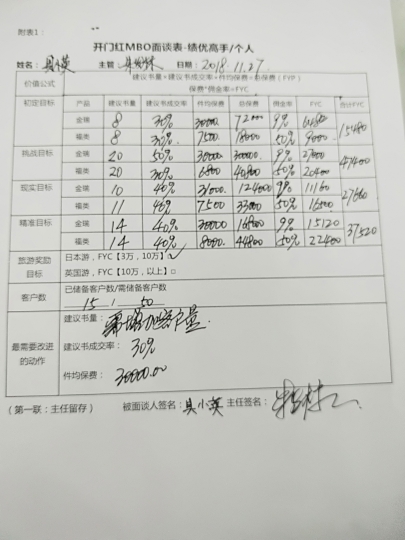 附表1：
开门红MBO面谈表-绩优高手/个人
姓名： 吴小英 主管： 日期： 2018.11.27
价值公式 建议书量*建议书成交率*件均保费=总保费（FYP）
保费*佣金率=FYC
初定目标 产品 建议书量 建议书成交率 件均保费 总保费 佣金率 FYC 合计FYC
金瑞 8 30% 30000 72000 9% 6480 15480
福类 8 30% 7500 18000 50% 9000
挑战目标 金瑞 20 50% 30000 300000 9% 27000 47400
福类 20 30% 6800 40800 50% 20400
现实目标 金瑞 10 40% 31000 124000 9% 11160 27660
福类 11 40% 7500 33000 50% 16500
精准目标 金瑞 14 40% 30000 168000 9% 15120 37520
福类 14 40% 8000 44800 50% 22400
旅游奖励目标 日本游，FYC【3万，10万】
英国游，FYC【10万，以上】□
客户数 已储备客户数/需储备客户数
15 / 50
最需要改进的动作 建议书量： 需增加客户量
建议书成交率： 30%
件均保费： 30000.00
（第一联：主任留存） 被面谈人签名： 吴小英 主任签名：